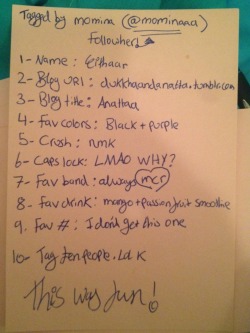 Tagged by momina (@mominaaa)
Follow her!
1- Name:
2- Blog URL: dukkhaandanatta.tumblr.com
3- Blog title: Anattaa
4- Fav colors: Black + purple
5- Crush: nmk
6- Caps lock: LMAO WHY?
7- Fav band: always mcr
8- Fav drink: mango + passion fruit smoothie
9. Fav #: I don't get this one
10- Tag ten people. Lol K
This was fun!